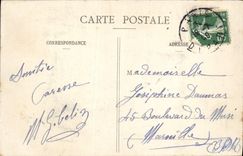 CARTE POSTALE
CORRESPONDANCE
ADRESSE
Amitié
Caresse
Mademoiselle
Joséphine Daumas
45 Boulevard du Musée
Marseille